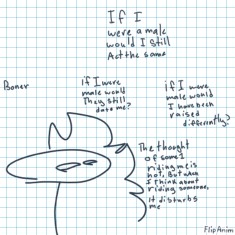 If I
were a male
would I still
Act the same
Boner
if I were
male would
They still
date me?
if I were
male would
I have been
raised
differently?
The thought
of some1
riding me is
hot, But when
I think about
riding someone,
it disturbs
me
FlipAnim